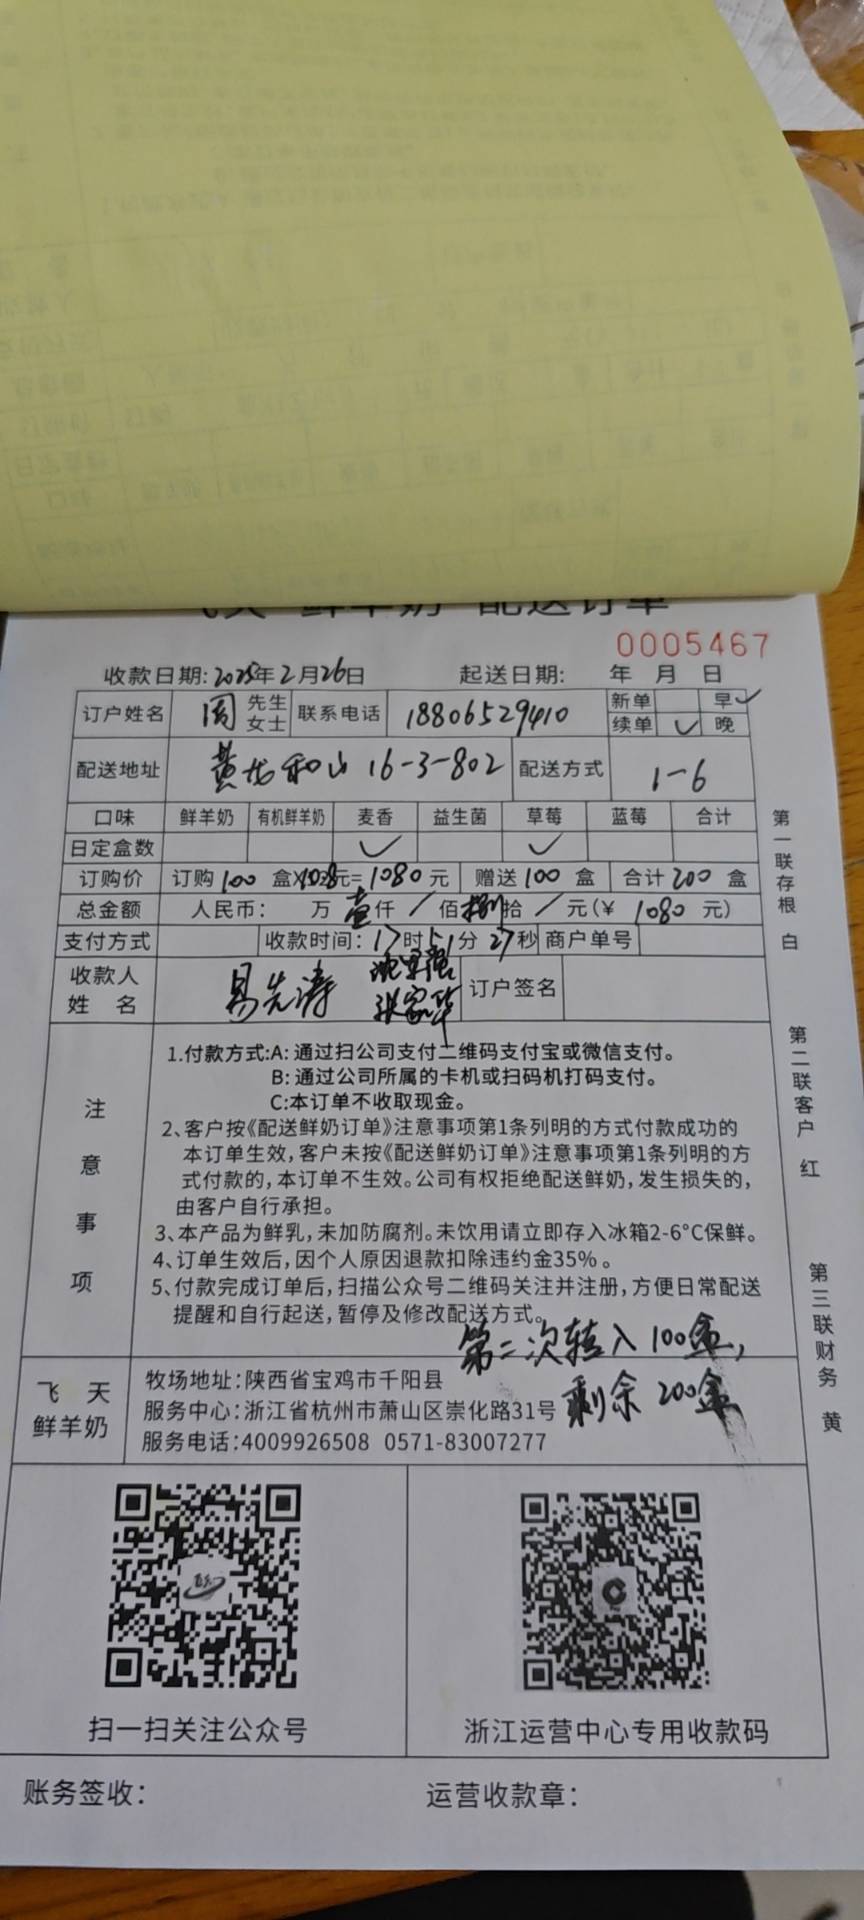 飞天 鲜羊奶 配送订单
0005467
收款日期: 2025年2月26日 起送日期: 年 月 日
订户姓名 周 先生 女士 联系电话 18806529410 新单 早✓
续单 ✓ 晚
配送地址 黄龙和山 16-3-802 配送方式 1-6
口味 鲜羊奶 有机鲜羊奶 麦香 益生菌 草莓 蓝莓 合计
日定盒数 ✓ ✓
订购价 订购100盒X10.8元=1080元 赠送100盒 合计200盒
总金额 人民币: 万壹仟/佰捌拾/元(¥ 1080 元)
支付方式 收款时间: 17时51分27秒 商户单号
收款人姓名 易先涛 张家华 订户签名
注意事项
1.付款方式:A: 通过扫公司支付二维码支付宝或微信支付。
B: 通过公司所属的卡机或扫码机打码支付。
C:本订单不收取现金。
2、客户按《配送鲜奶订单》注意事项第1条列明的方式付款成功的
本订单生效,客户未按《配送鲜奶订单》注意事项第1条列明的方
式付款的,本订单不生效。公司有权拒绝配送鲜奶,发生损失的,
由客户自行承担。
3、本产品为鲜乳,未加防腐剂。未饮用请立即存入冰箱2-6°C保鲜。
4、订单生效后,因个人原因退款扣除违约金35%。
5、付款完成订单后,扫描公众号二维码关注并注册,方便日常配送
提醒和自行起送,暂停及修改配送方式。
第二次转入100盒,
剩余200盒
飞天
鲜羊奶
牧场地址:陕西省宝鸡市千阳县
服务中心:浙江省杭州市萧山区崇化路31号
服务电话:4009926508 0571-83007277
扫一扫关注公众号 浙江运营中心专用收款码
账务签收: 运营收款章:
第一联存根 白
第二联客户 红
第三联财务 黄